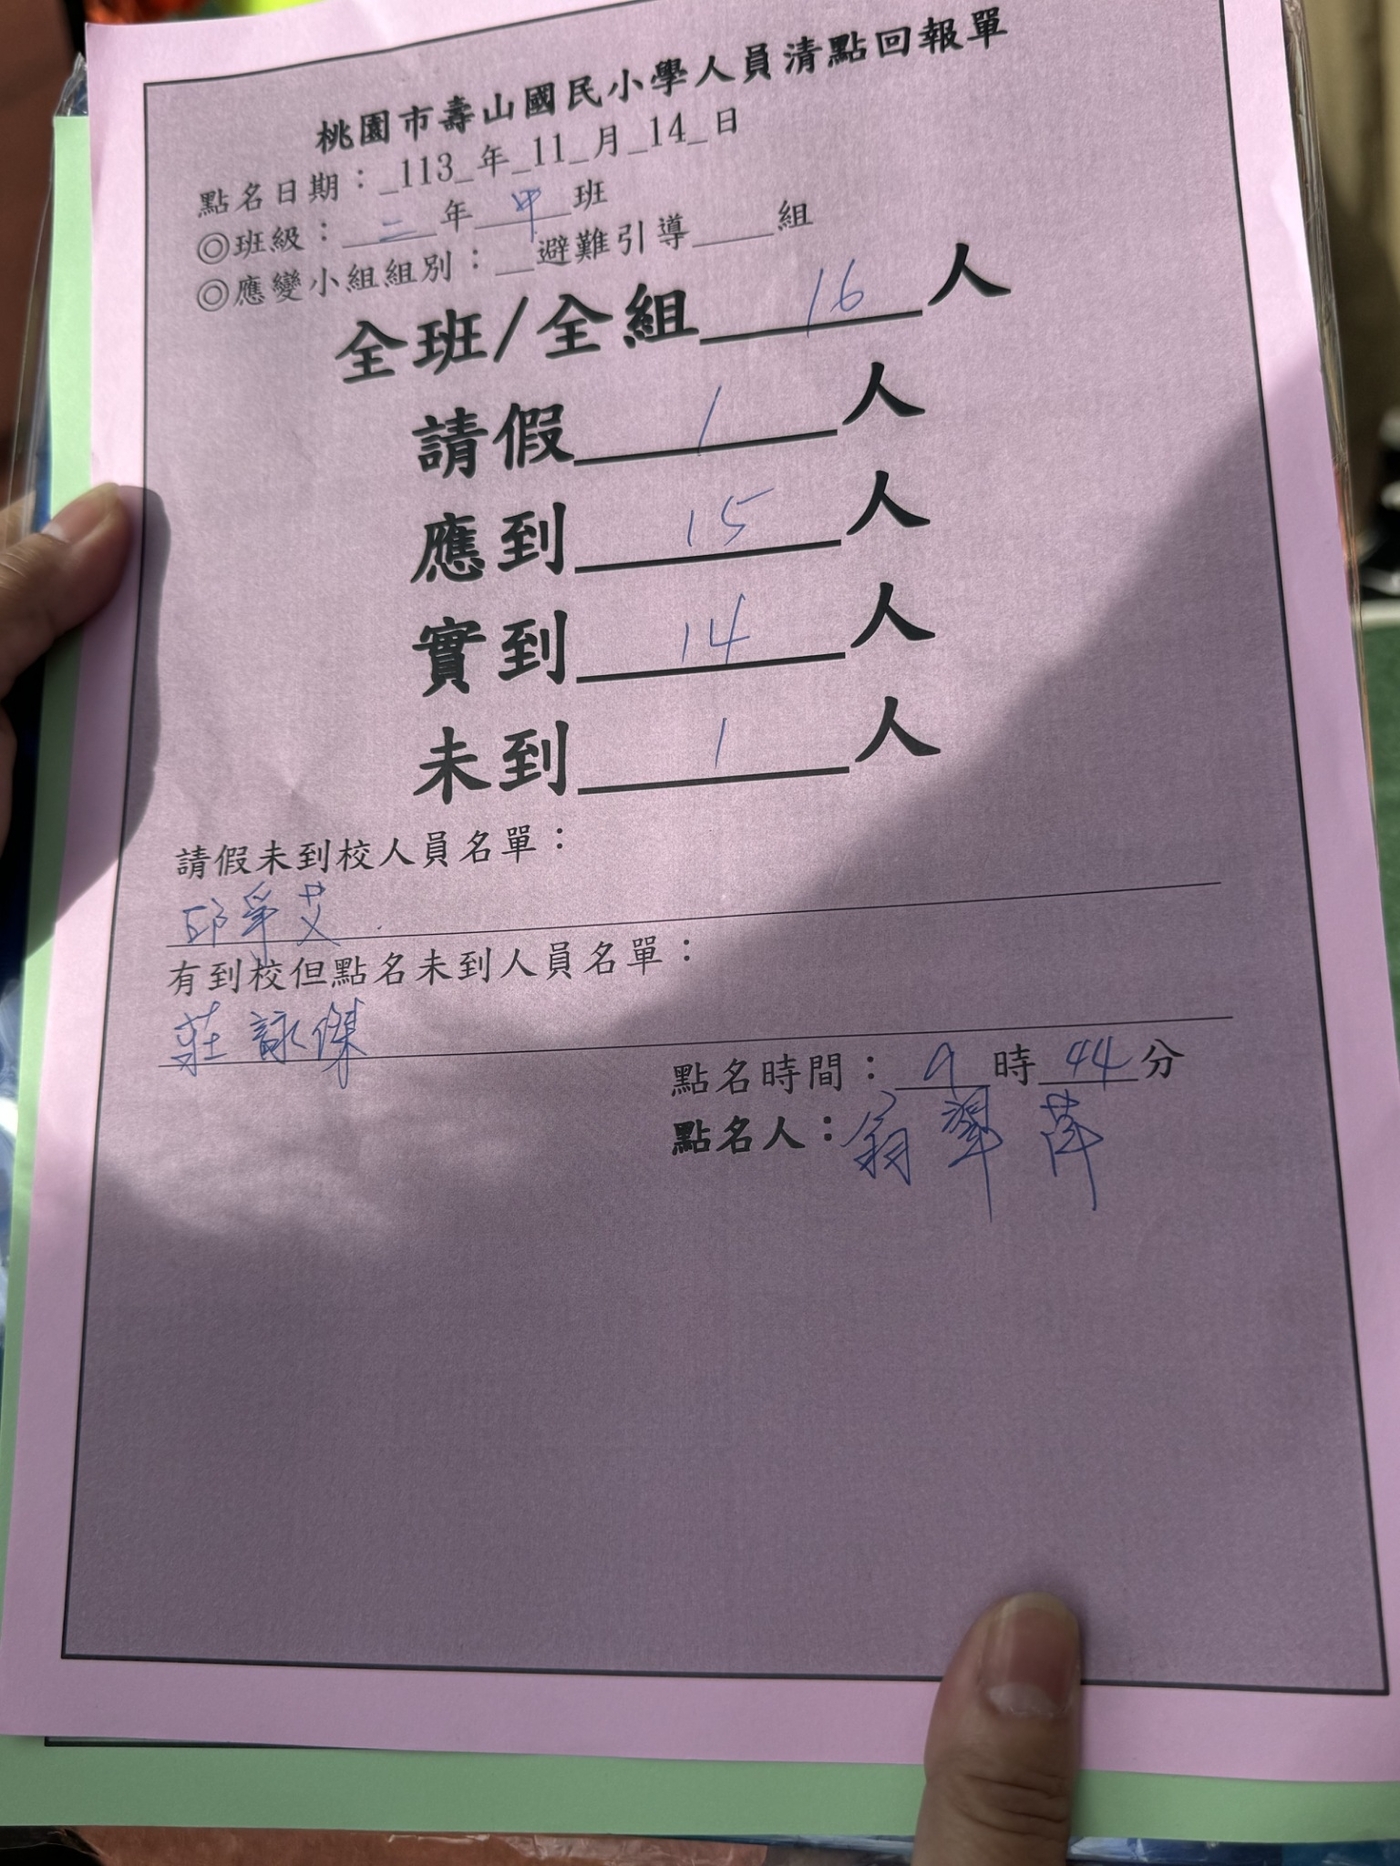 桃園市壽山國民小學人員清點回報單
點名日期：_113_年_11_月_14_日
◎班級：二年甲班
◎應變小組組別：__避難引導____組
全班/全組 16 人
請假 1 人
應到 15 人
實到 14 人
未到 1 人
請假未到校人員名單：
邱爭艾
有到校但點名未到人員名單：
莊詠傑
點名時間：9時44分
點名人：翁翠萍